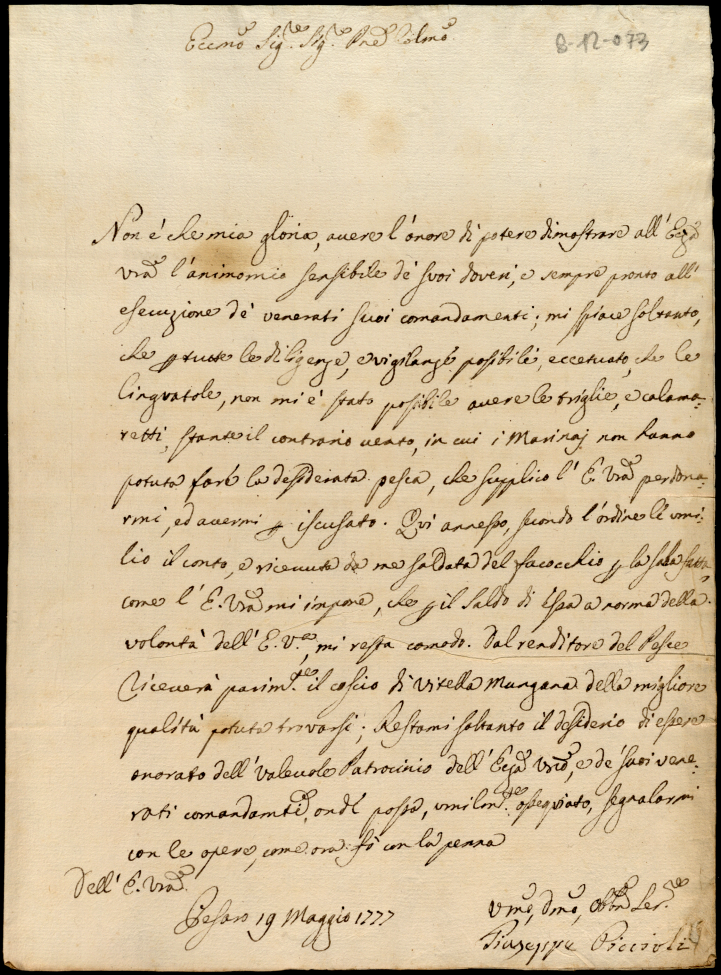 Eccmo Sigre Sigre Pne Colmo
8-12-073
Non é che mia gloria, avere l'onore di potere dimostrare all'Eccza
Vra l'animo mio sensibile de' suoi doveri, e sempre pronto all'
esecuzione de' venerati suoi comandamenti; mi spiace soltanto,
che p tutte le diligenze, e vigilanze posibili, eccetuato, che le
linguatole, non mi é stato posibile avere le triglie, e calama:
retti, stante il contrario vento, in cui i Marinaj non hanno
potuta fare la desiderata pesca, che supplico l'E. Vra perdona:
rmi, ed avermi p iscusato. Qui annesso, secondo l'ordine li umi:
lio il conto, e ricevuta da me saldata del facocchio p la sala fatta,
come l'E. Vra mi impone, che p il saldo di essa a norma della
volontà dell'E. Va, mi resta comodo. Dal renditore del Pesce
riceverà parimte il coscio di Vitella Mungana della migliore
qualità potuta trovarsi; Restami soltanto il desiderio di essere
onorato dell'valevole Patrocinio dell'Eccza Vra, e de' suoi vene:
rati comandamti, onde possa, umilmte ossequiato, segnalarmi
con le opere, come ora fò con la penna
Dell'E. Vra
Pesaro 19 Maggio 1777
Vmo, Dmo, Obbmo Serre
Giuseppe Piccioli